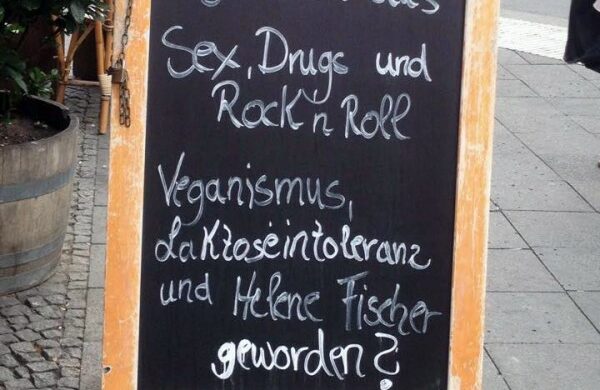 Sex, Drugs und
Rock'n Roll
Veganismus,
Laktoseintoleranz
und Helene Fischer
geworden?